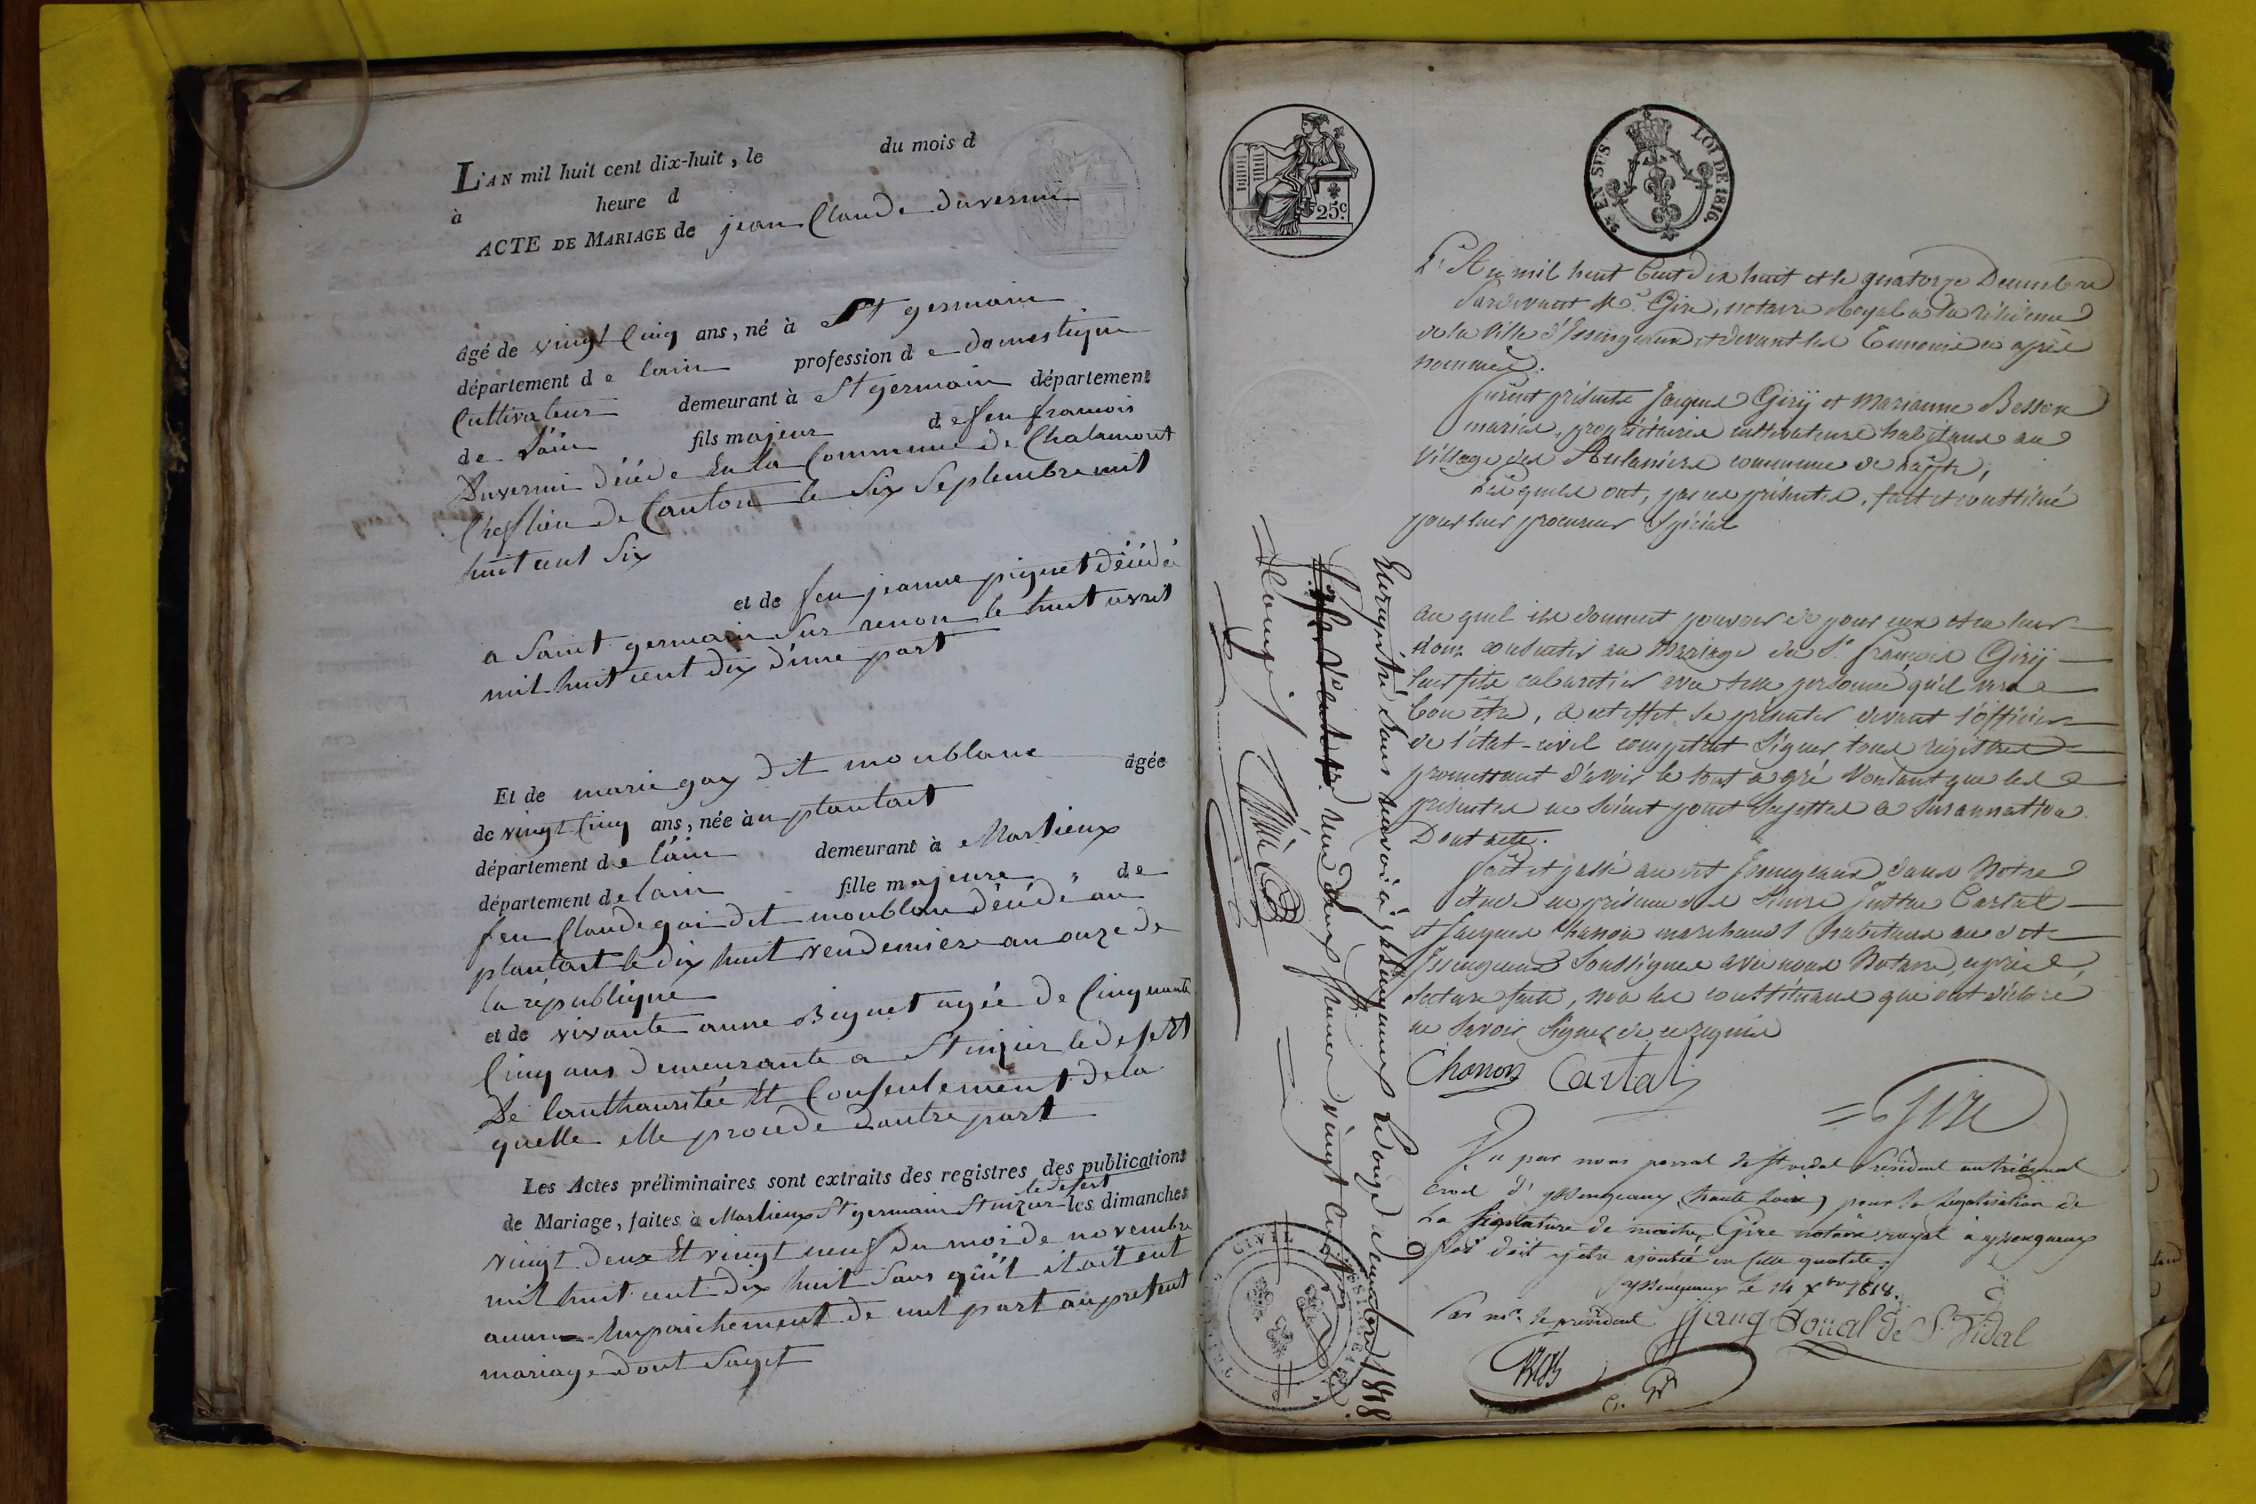 L'AN mil huit cent dix-huit, le du mois d
à heure d
ACTE DE MARIAGE de jean Claude duverni
âgé de vingt Cinq ans, né à St germain
département de lain profession de domestique
Cultivateur demeurant à St germain département
de l'ain fils majeur de feu francois
Duverni décédé En la Commune de Chalamont
Chef lieu de Canton le Six Septembre mil
huit cent Six
et de feu jeanne piquet décédée
a Saint germain Sur renon le huit avril
mil huit cent dix d'une part
Et de marie gay dit moublanc âgée
de vingt Cinq ans, née à u plantait
département de l'ain demeurant à Marlieux
département de lain fille majeure de
feu Claude gai dit moublan décédé au
plantait le dix huit vendemiere an onze de
la république
et de vivante anne Biguet agée de Cinquante
Cinq ans demeurante a St nizier le desert
De lauthauritée Et Consentement de la
quelle elle procede dautre part
Les Actes préliminaires sont extraits des registres des publications
de Mariage, faites à Marlieux St germain St nizier le desert les dimanches
vingt deux Et vingt neuf du mois de novembre
mil huit cent dix huit Sans qu'il i
aucun Empaichement de nul part au présent
mariage dont Sagit
25c
EN SUS LOI DE 1816.
L'An mil huit Cent dix huit et le quatorze Decembre
Pardevant Me. Gire, notaire Royal a la résidence
de la Ville d'Issingeaux et devant les Temoins ci après
nommés.
furent présents Jacques Giry et Marianne Besson
mariés, propriétaires cultivateurs habitans au
Village des commune de
Lesquels ont, par ces présentes, fait et constitué
pour leur procureur Spécial
au quel ils donnent pouvoir de pour eux et en leur
nom consentir au Mariage du Sr. françois Giry
leur fils cabaretier avec telle personne qu'il verra
bon être, a cet effet se présenter devant l'officier
de l'état-civil competent Signer tous régistres
promettant d'avoir le tout a gré Voulant que les
présentes ne soient point Sujettes a Surannation
Dont acte.
fait et passé au dit Issingeaux dans Notre
étude en présence de Sieurs Cartal
et Jacques Chanon marchands habitans au dit
Issingeaux Soussignés avec nous Notaire, après
lecture faite, non les constituans qui ont déclaré
ne Savoir Signer de ce requis
Chanon Cartal
Gire
Vu par nous porral de St vidal Président au tribunal
civil d'yssengeaux (haute Loire) pour la légalisation de
La Signature de maitre Gire notaire royal à yssengeaux
foi doit y être ajoutée en cette qualité.
yssengeaux le 14 xbre 1818.
Par mr. le président porral de St. Vidal
Enregistré Sans renvoi à yssengeaux Le douze décembre 1818
Reçu deux francs vingt
CIVIL